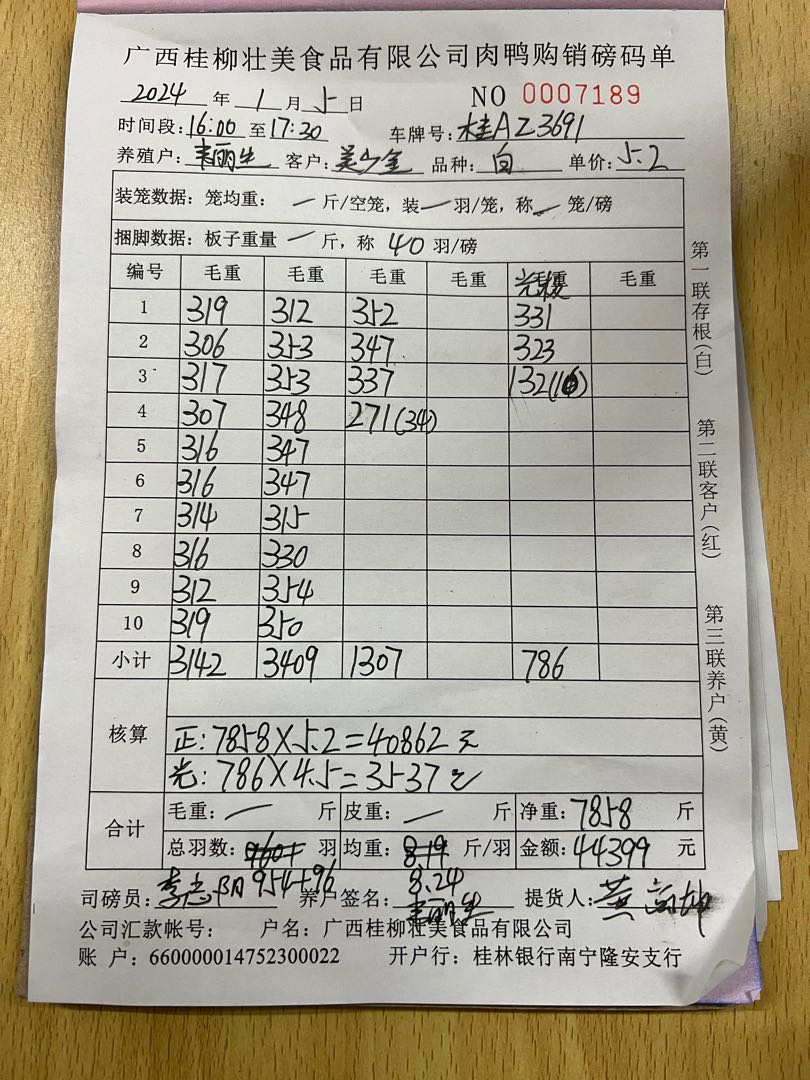 广西桂柳壮美食品有限公司肉鸭购销磅码单
2024 年 1 月 5 日 NO 0007189
时间段:16:00 至 17:20 车牌号:桂AZ3691
养殖户:韦丽生 客户:吴少金 品种:白 单价:5.2
装笼数据:笼均重: 一 斤/空笼,装 一 羽/笼,称 一 笼/磅
捆脚数据:板子重量 一 斤,称 40 羽/磅
编号 毛重 毛重 毛重 毛重 毛重 毛重
1 319 312 352 331
2 306 353 347 323
3 317 353 337 132(16)
4 307 348 271(34)
5 316 347
6 316 347
7 314 315
8 316 330
9 312 354
10 319 350
小计 3142 3409 1307 786
核算
正:7858×5.2=40862元
光:786×4.5=3537元
合计
毛重: 一 斤 皮重: 一 斤 净重:7858 斤
总羽数: 羽 均重:8.19 斤/羽 金额:44399 元
954+96 8.24
司磅员:李志阳 养户签名:韦丽生 提货人:
公司汇款帐号: 户名:广西桂柳壮美食品有限公司
账 户:660000014752300022 开户行:桂林银行南宁隆安支行
第一联存根(白)
第二联客户(红)
第三联养户(黄)